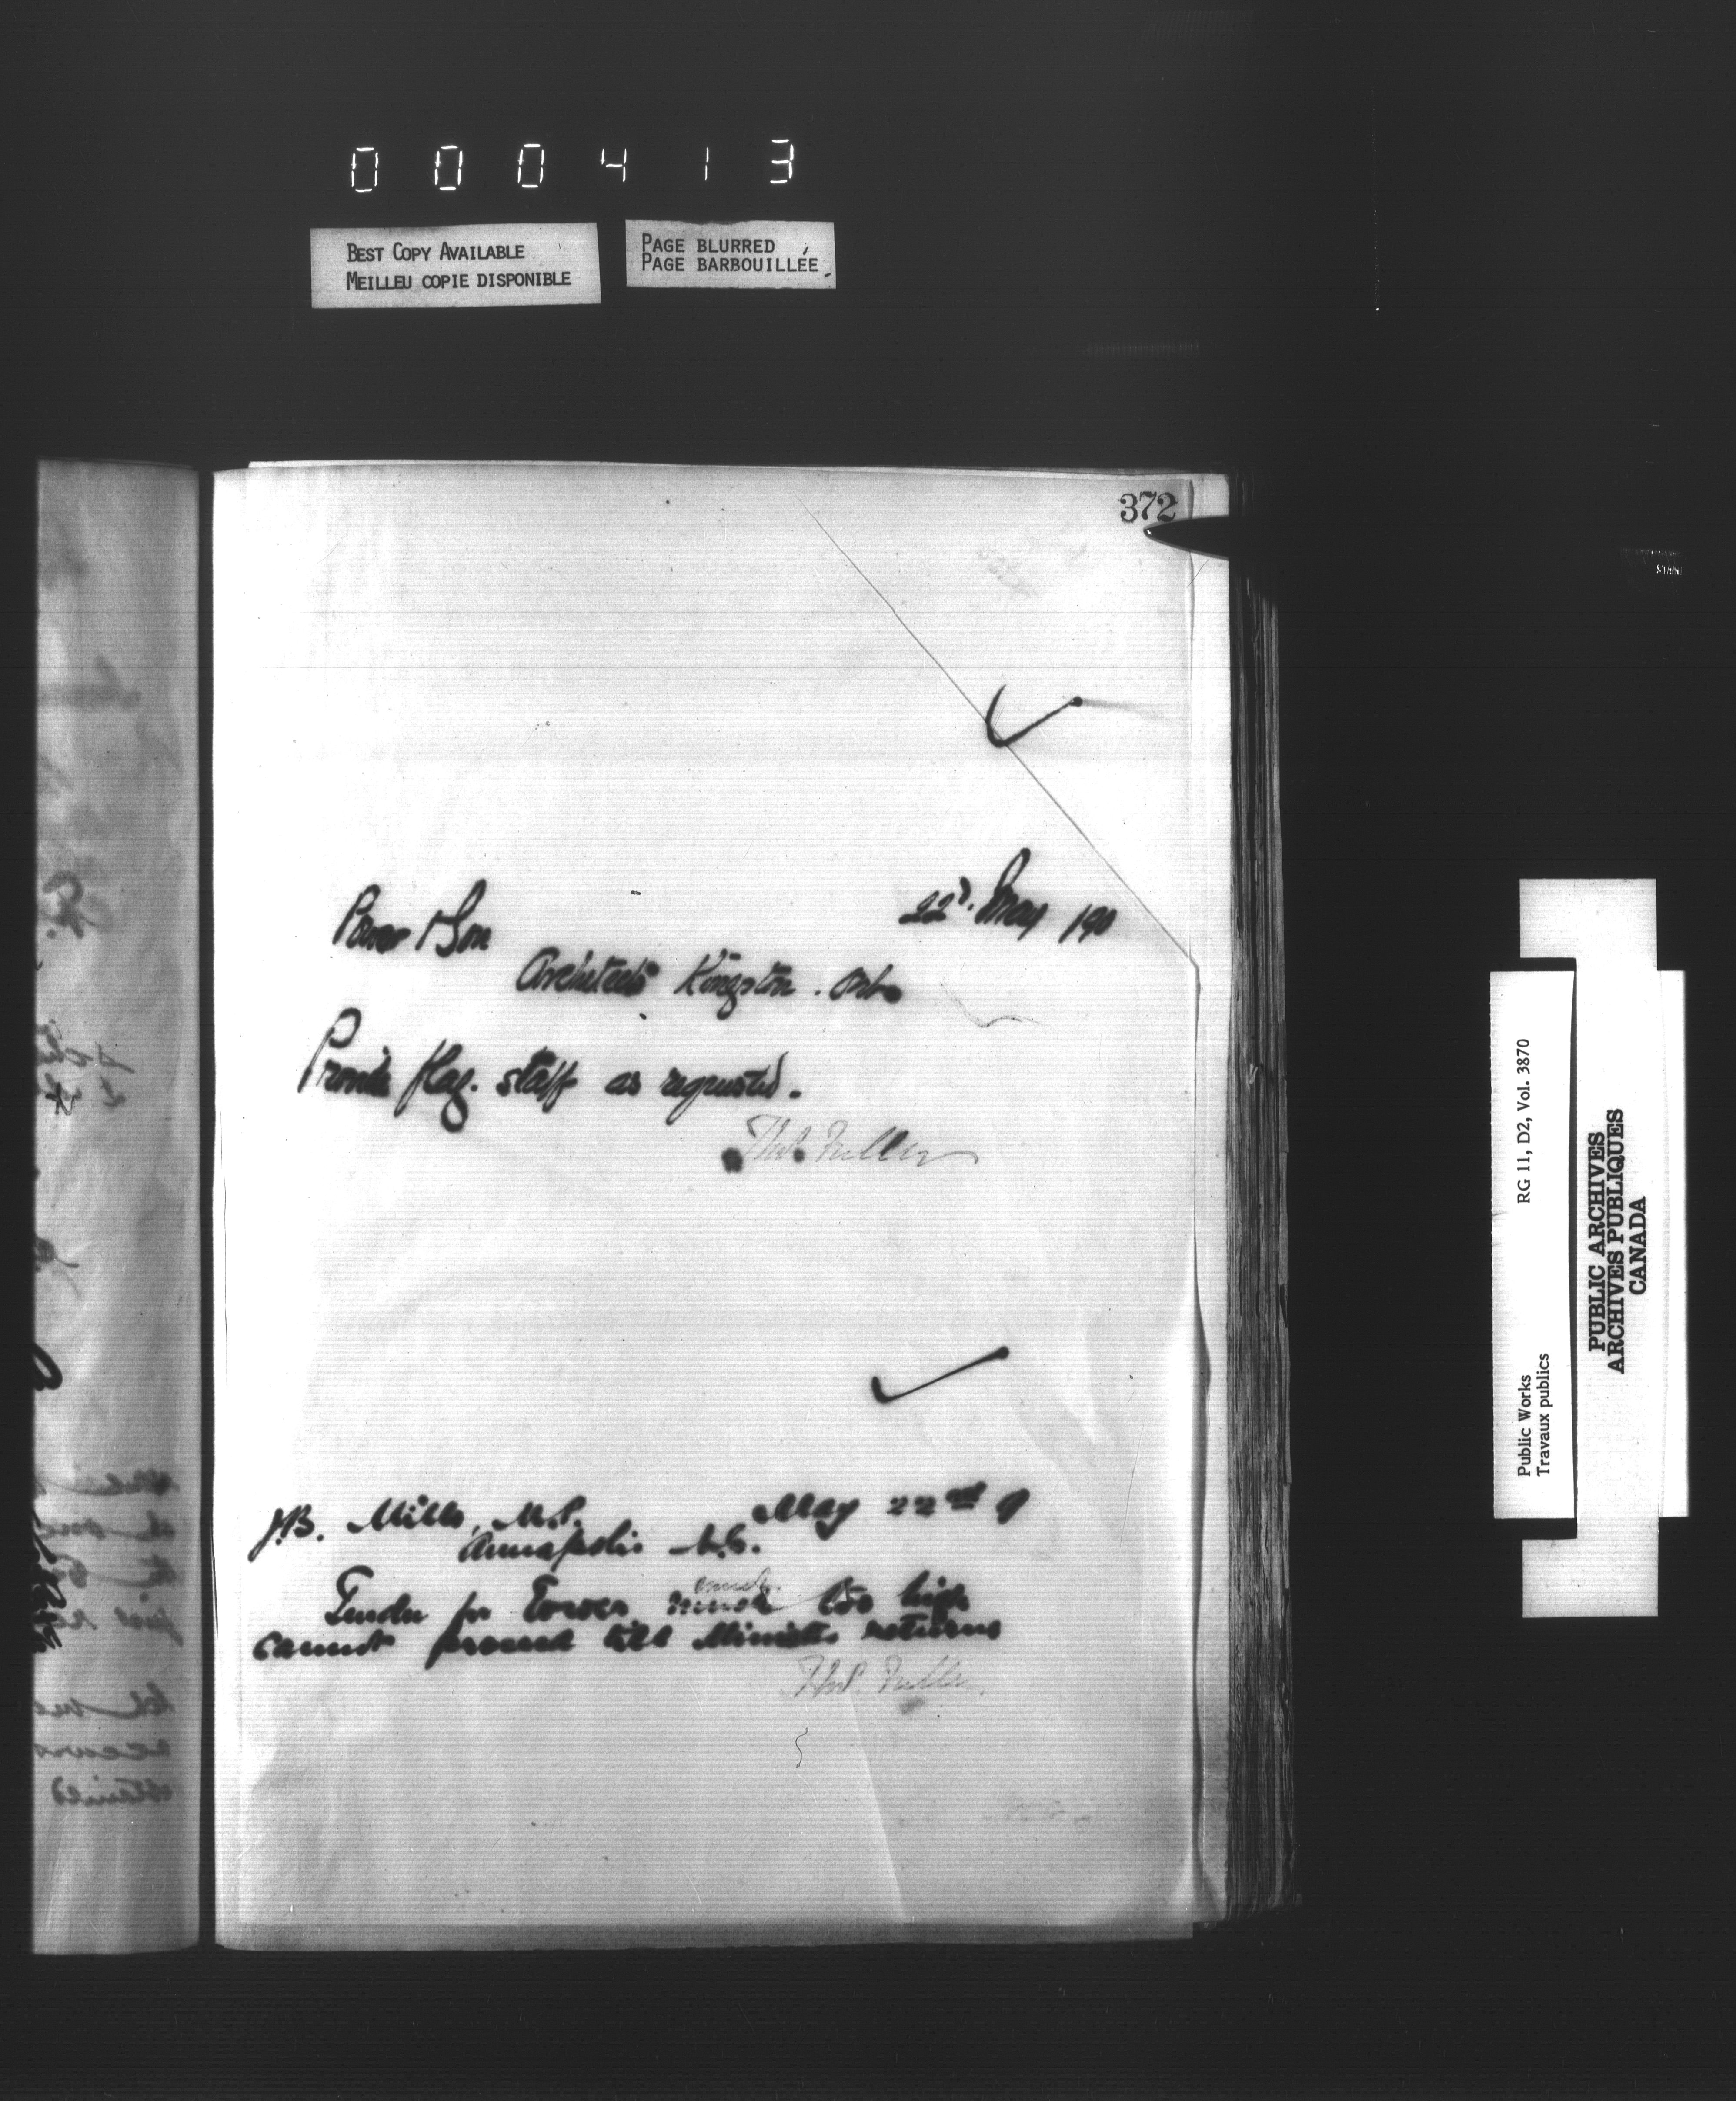 000413
BEST COPY AVAILABLE
MEILLEU COPIE DISPONIBLE
PAGE BLURRED
PAGE BARBOUILLÉE
372
22d. May /90
Power & Son
Architects Kingston. Ont.
Provide flag. staff as requested.
Thos. Fuller
J.B. Mills, M.P. May 22nd 9
Annapolis N.S.
Tender for Tower much too high
cannot proceed till Minister returns
Thos. Fuller
Public Works
Travaux publics
RG 11, D2, Vol. 3870
PUBLIC ARCHIVES
ARCHIVES PUBLIQUES
CANADA